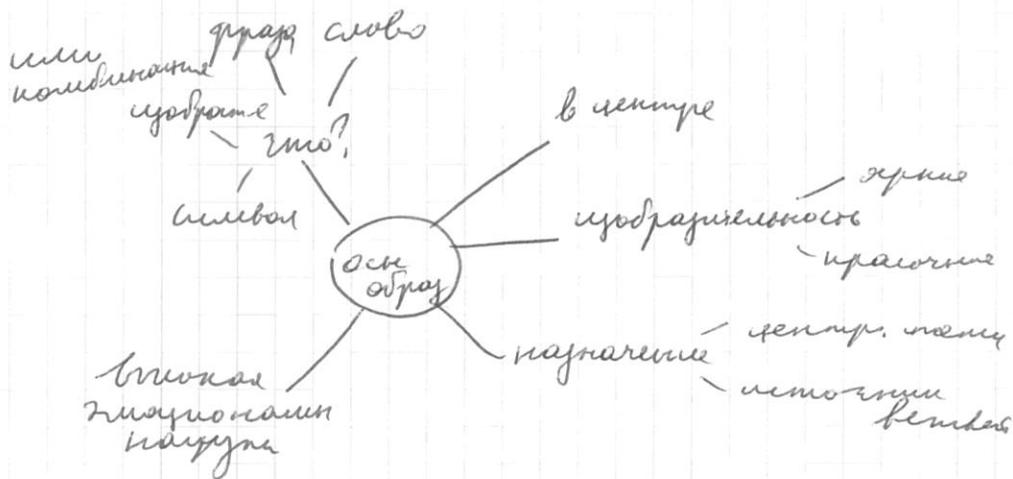 или
комбинация
фраза слово
изображе
что?
символ
в центре
изобразительность
яркие
красочные
осн
образ
назначение
центр. темы
источник
ветвей
высокая
эмоциональн
нагрузка